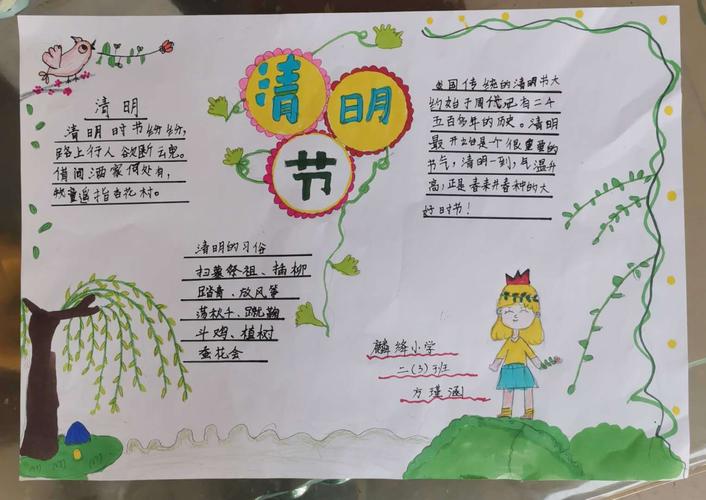 清明节
清明
清明时节纷纷,
路上行人欲断魂。
借问酒家何处有,
牧童遥指杏花村。
我国传统的清明节大
约始于周代已有二千
五百多年的历史。清明
最开始是个很重要的
节气,清明一到,气温升
高,正是春耕春种的大
好时节!
清明的习俗
扫墓祭祖、插柳
踏青、放风筝
荡秋千、蹴鞠
斗鸡、植树
蚕花会
麟绛小学
二(3)班
方瑾涵